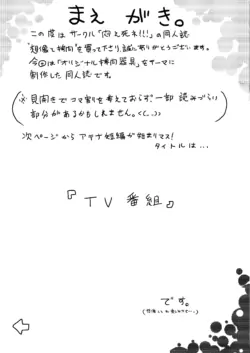 まえがき。
この度はサークル「悶え死ね!!!」の同人誌
"想像で拷問"を買って下さり、誠にありがとうございます。
今回は「オリジナル拷問器具」をテーマに
制作した同人誌です。
(※見開きでコマ割りを考えておらず、一部読みづらい
部分があるかもしれません。<(_ _)>)
次ページからアナザ短編が始まりマス!
タイトルは…
『TV番組』
です。